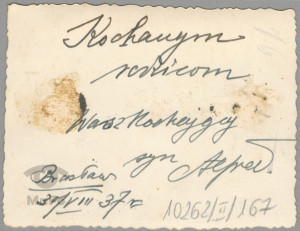 Kochanym
rodzicom
Wasz Kochający
syn Alfred
Brasław
31/VIII 37 r
10262/II/167